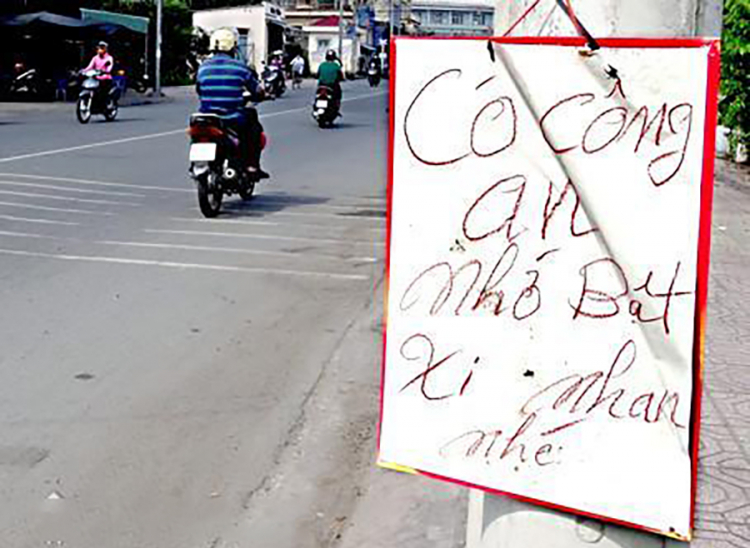 Có cổng
an
nhớ Bật
Xi nhan
nhé